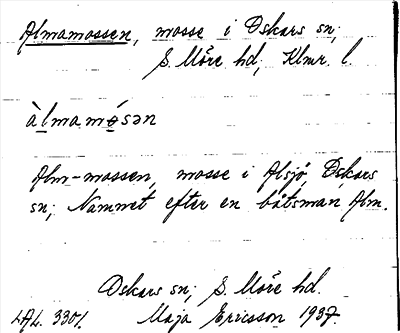 Almamossen, mosse i Oskars sn;
S. Möre hd; Klmr. l.
àlmamósən
Alm-mossen, mosse i Alsjö, Oskars
sn; Namnet efter en båtsman Alm.
Oskars sn; S. Möre hd.
LAL. 3301. Maja Ericsson 1937.